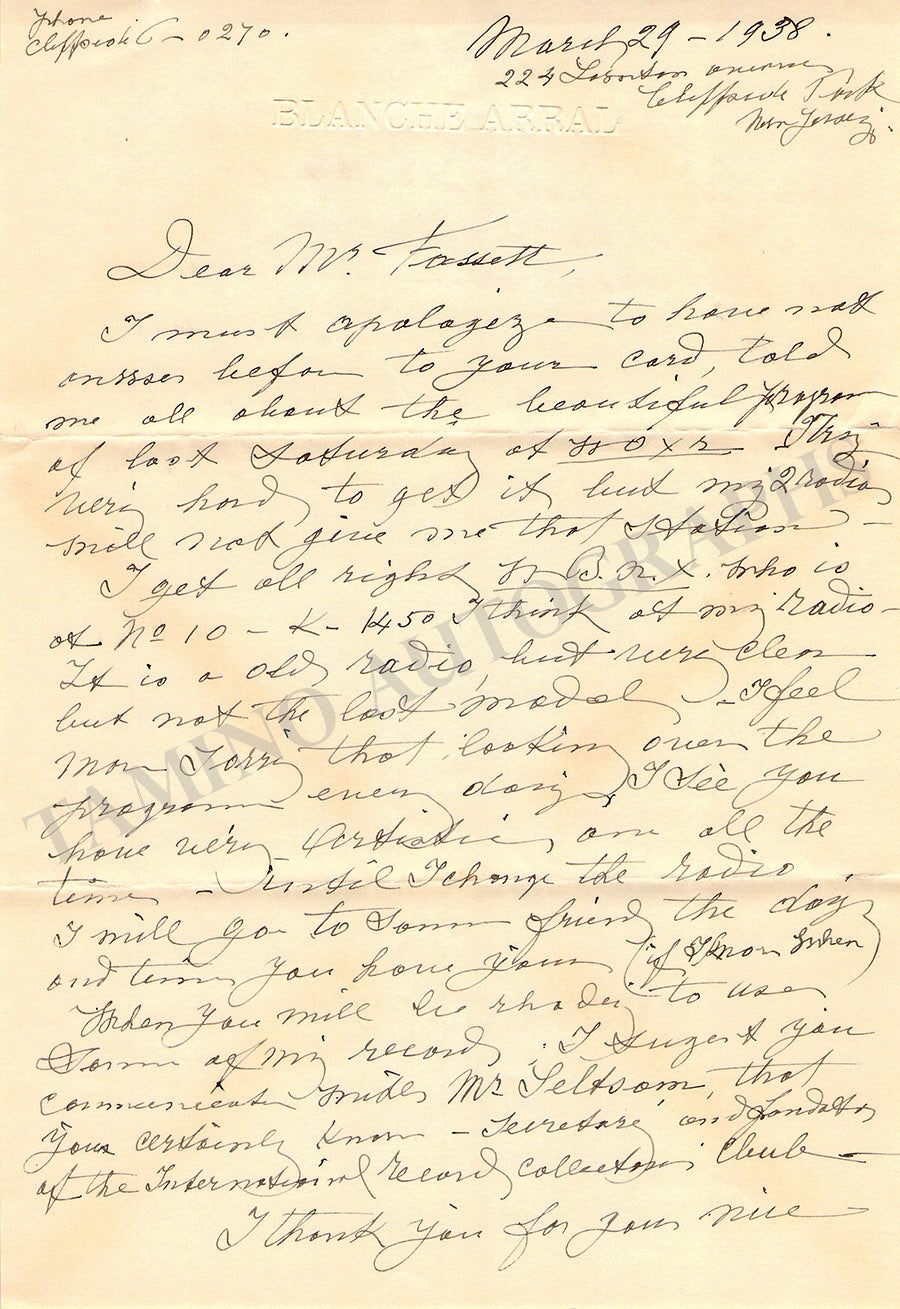 Phone
Cliffside 6 - 0270.
March 29 - 1938.
224 avenue
Cliffside Park
New Jersey.
BLANCHE ARRAL
Dear Mr. Fassett,
I must apologize to have not
before to your card, told
me all about the beautiful program
of last Saturday at I try
very hard to get it but my 2 radio
will not give me that station -
I get all right W. B. N. X. who is
at No 10 - K - 1450 I think at my radio -
It is a old radio, but very clear
but not the last model - I feel
more sorry that looking over the
program every day, I see you
have very Artistic one all the
time - until I change the radio
I will go to some friend the day
and time you have your (if I know when)
When you will be to use
some of my records. I sugest you
communicate with Mr. Seltsam, that
you certainly know - secretary and fondator
of the International record collectors Club -
I thank you for your nice
TAMINO AUTOGRAPHS